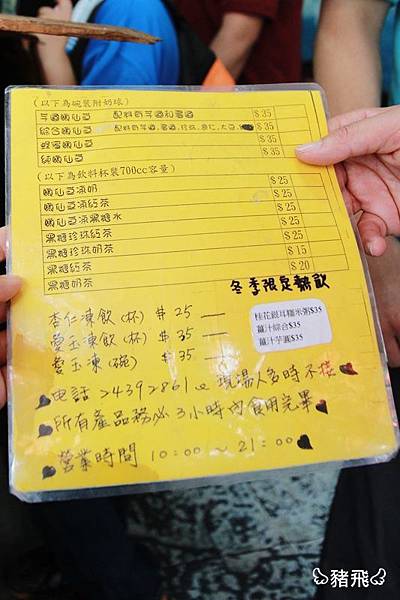 (以下為碗裝附奶球)
芋圓燒仙草 配料有芋圓和蜜圓 $35
綜合燒仙草 $35
蜂蜜燒仙草 $35
純燒仙草 $35
(以下為飲料杯裝700cc容量)
燒仙草凍奶 $25
燒仙草凍紅茶 $25
燒仙草凍黑糖水 $25
黑糖珍珠紅茶 $25
黑糖珍珠奶茶
黑糖紅茶 $15
黑糖奶茶 $20
冬季限定熱飲
桂花銀耳糯米粥$35
薑汁綜合$35
薑汁芋圓$35
杏仁凍飲(杯) $25
愛玉凍飲(杯) $35
愛玉凍(碗) $35
電話 24392861 現場人多時不接
所有產品務必3小時內食用完畢
營業時間 10:00~21:00
豬飛